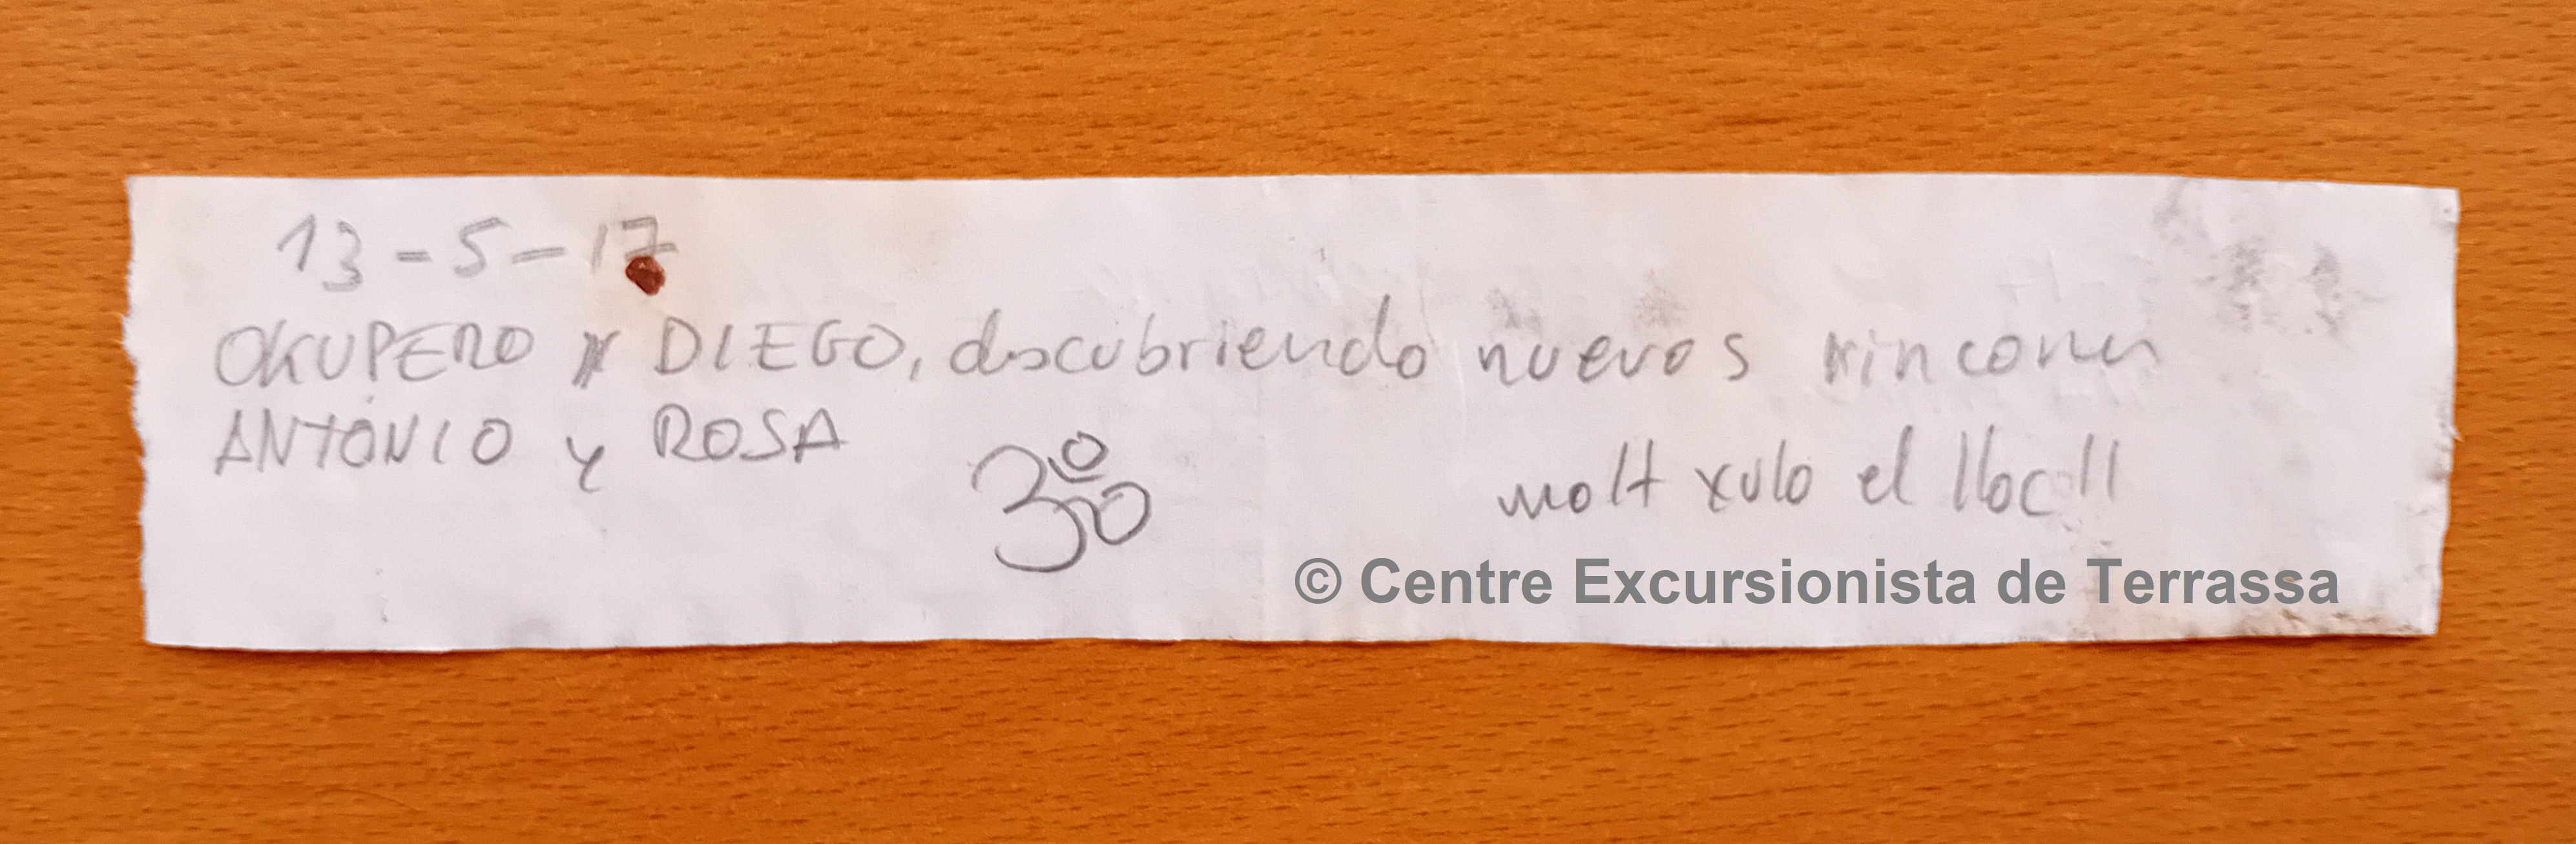 13-5-17
OKUPERO x DIEGO, descubriendo nuevos rincones
ANTONIO y ROSA ॐ
molt xulo el lloc!!
© Centre Excursionista de Terrassa